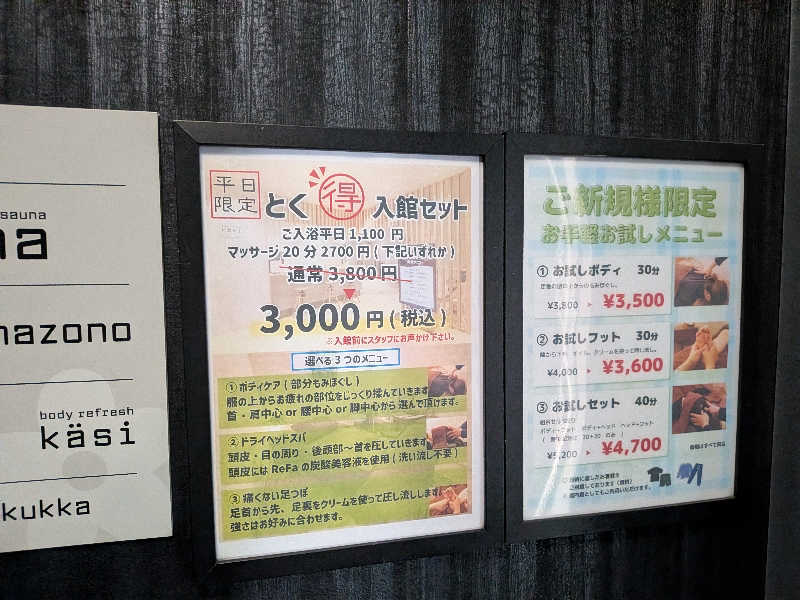 sauna
na
nazono
body refresh
käsi
kukka
平日限定 とく 得 入館セット
ご入浴平日1,100 円
マッサージ20分2700円(下記いずれか)
通常3,800円
3,000円(税込)
※入館前にスタッフにお声がけ下さい。
選べる3つのメニュー
①ボディケア(部分もみほぐし)
服の上からお疲れの部位をじっくり揉んでいきます
首・肩中心or腰中心or脚中心から選んで頂けます。
②ドライヘッドスパ
頭皮・目の周り・後頭部〜首を圧していきます
頭皮にはReFaの炭酸美容液を使用(洗い流し不要)
③痛くない足つぼ
足首から先、足裏をクリームを使って圧し流しします
強さはお好みに合わせます。
ご新規様限定
お手軽お試しメニュー
①お試しボディ 30分
¥3,800 ▶ ¥3,500
②お試しフット 30分
¥4,000 ▶ ¥3,600
③お試しセット 40分
¥5,200 ▶ ¥4,700